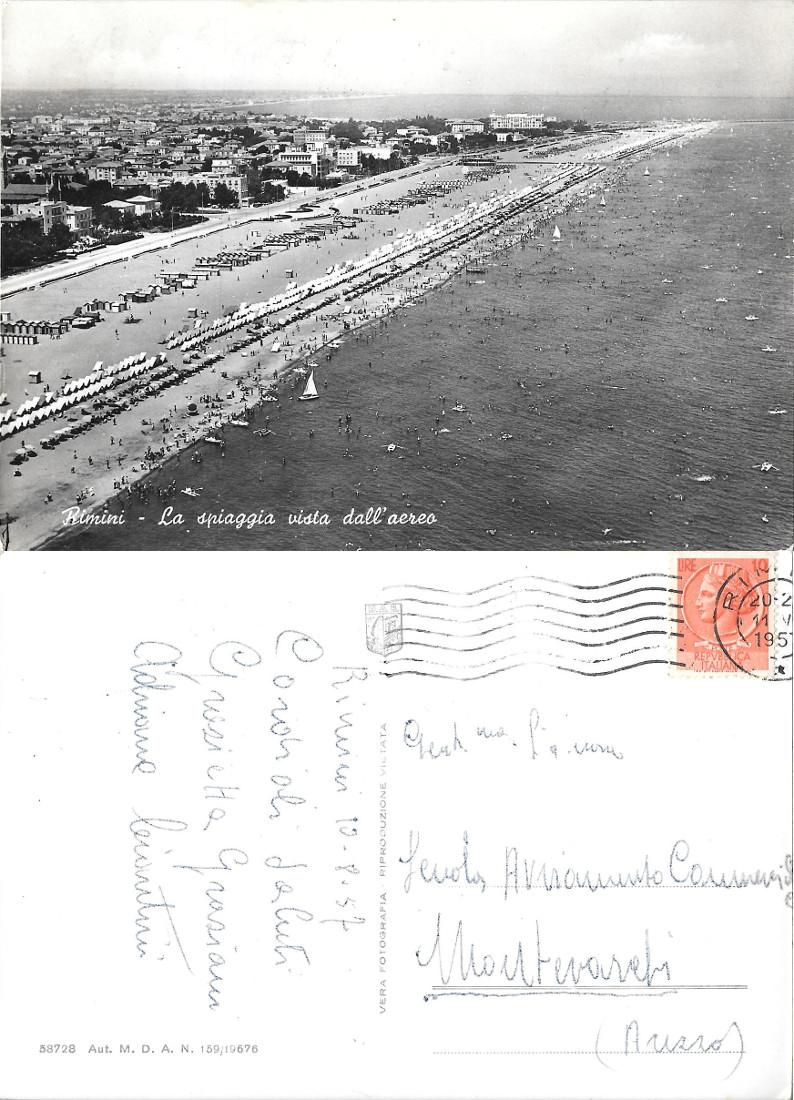 Rimini - La spiaggia vista dall'aereo
LIRE 10
REPVBBLICA
ITALIANA
20-2
11
1957
Rimini 10-8-57
Cordiali saluti
Graziella Graziani
Adriana
Gent.ma
Scuola Avviamento Commerciale
Montevarchi
(Arezzo)
VERA FOTOGRAFIA - RIPRODUZIONE VIETATA
58728 Aut. M. D. A. N. 159/19676